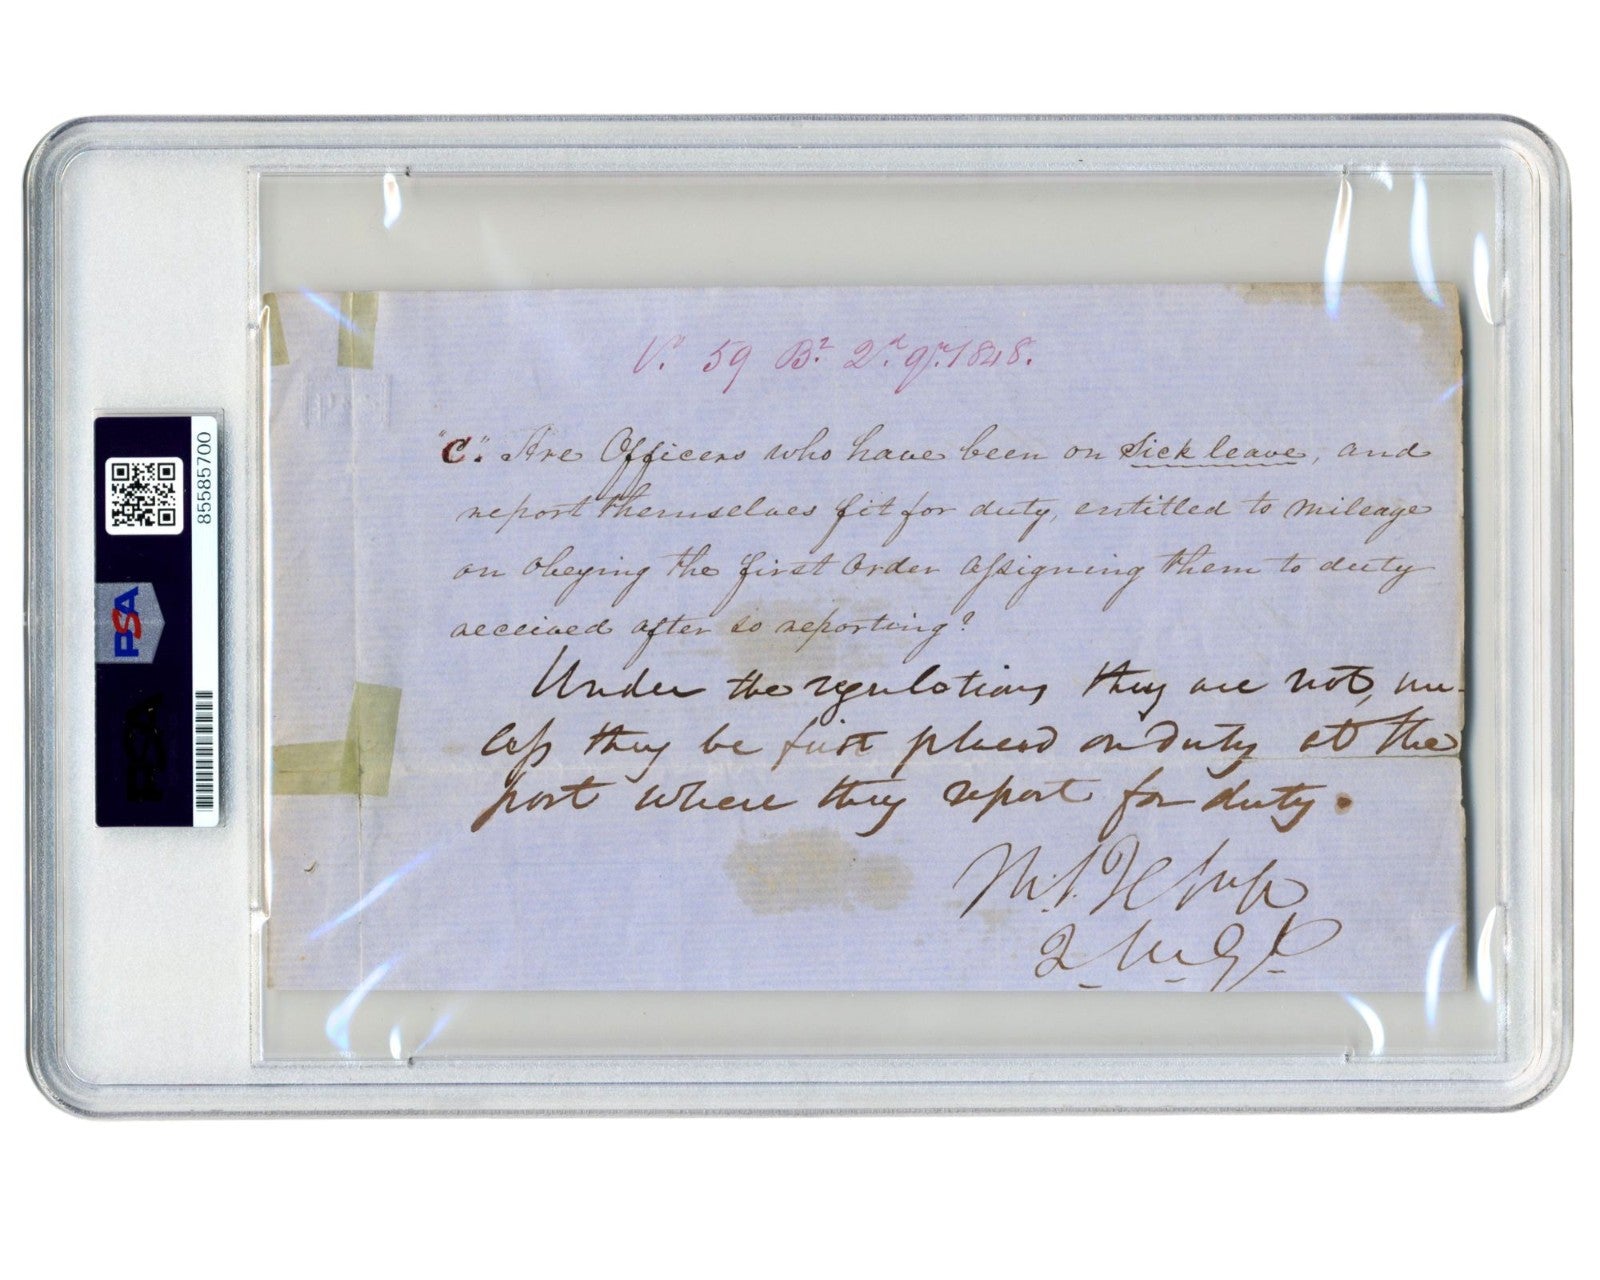 V.r 59 B.2 2.d qr. 1848.
"C." Are Officers who have been on Sick leave, and
report themselves fit for duty, entitled to mileage
on obeying the first Order assigning them to duty
received after so reporting?
Under the regulations they are not, un-
less they be first placed on duty at the
post where they report for duty.
Th. S. Jesup
Q.M.G.
85585700
PSA
PSA